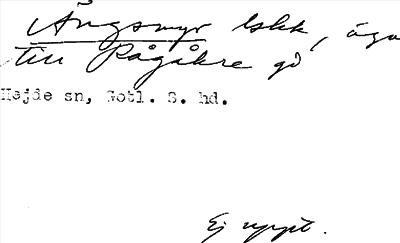 Ängsmyr lskk, äga
till Rågåkre gd
Hejde sn, Gotl. S. hd.
Ej uppt.